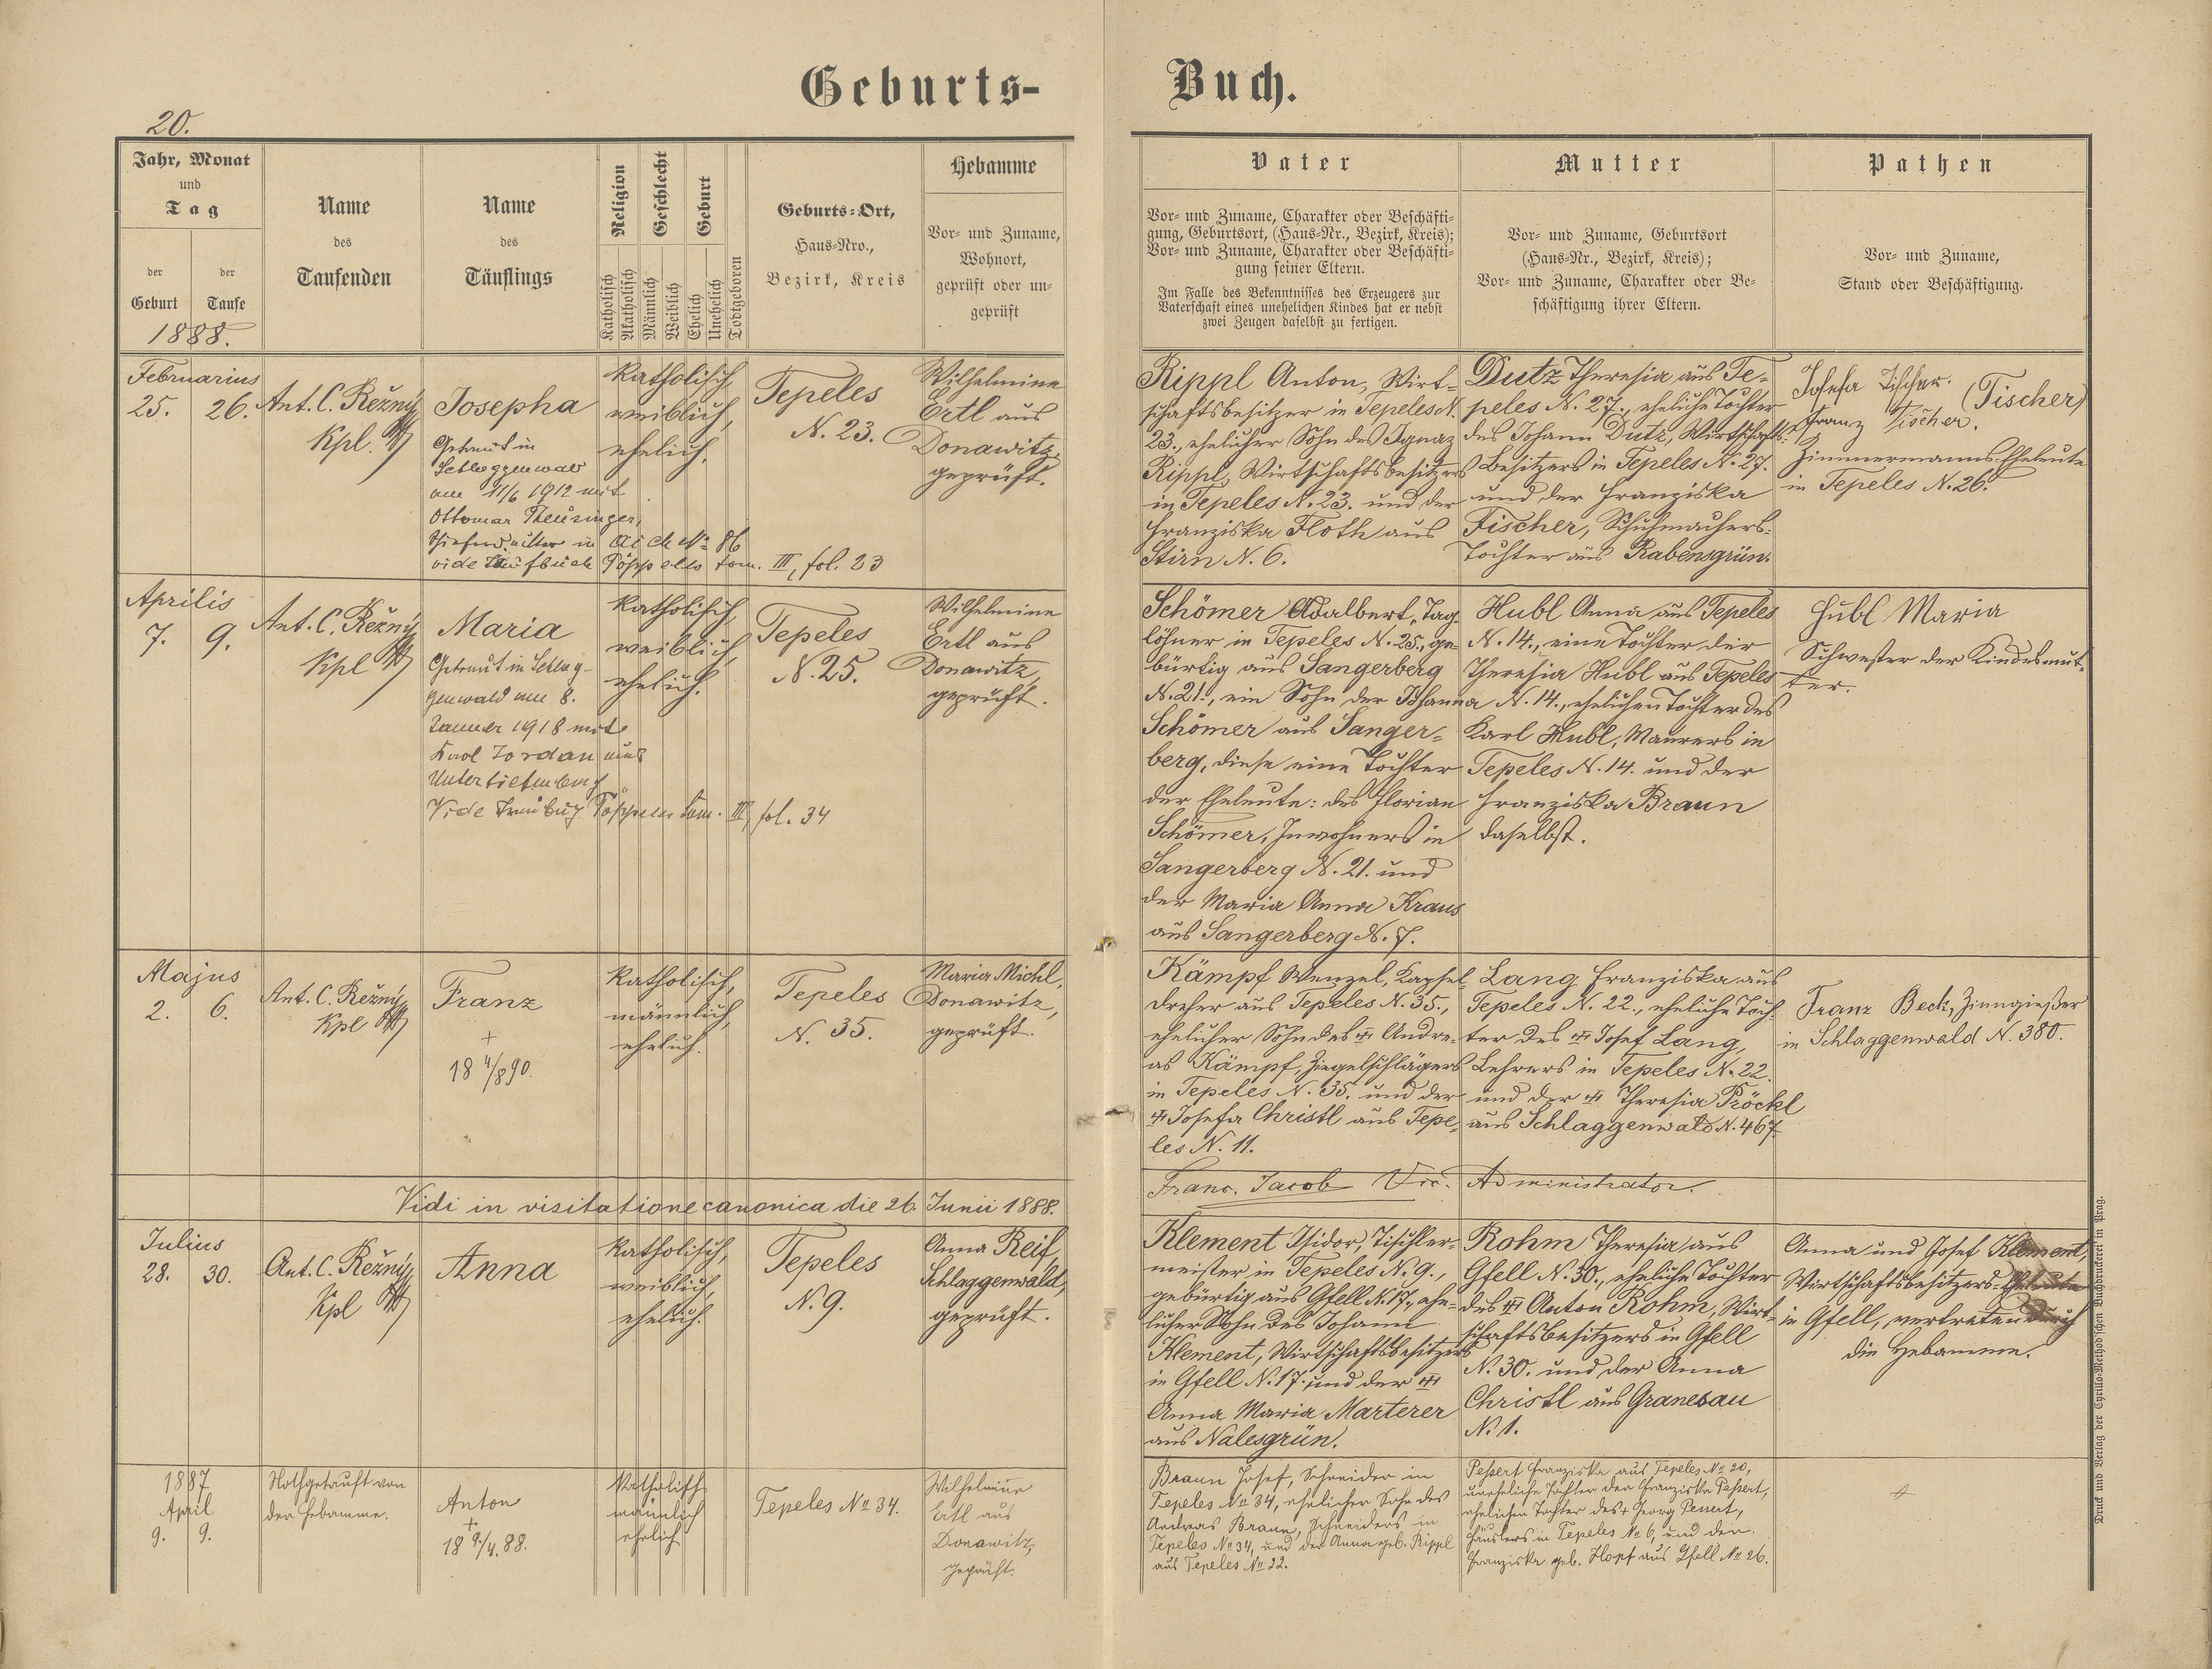 Geburts-Buch.
20.
Jahr, Monat
und
Tag
der Geburt
der Taufe
1888.
Name
des
Taufenden
Name
des
Täuflings
Religion
Katholisch
Akatholisch
Geschlecht
Männlich
Weiblich
Geburt
Ehelich
Unehelich
Todtgeboren
Geburts-Ort,
Haus-Nro.,
Bezirk, Kreis
Hebamme
Vor- und Zuname,
Wohnort,
geprüft oder un-
geprüft
Vater
Vor- und Zuname, Charakter oder Beschäfti-
gung, Geburtsort, (Haus-Nr., Bezirk, Kreis);
Vor- und Zuname, Charakter oder Beschäfti-
gung seiner Eltern.
Im Falle des Bekenntnisses des Erzeugers zur
Vaterschaft eines unehelichen Kindes hat er nebst
zwei Zeugen daselbst zu fertigen.
Mutter
Vor- und Zuname, Geburtsort
(Haus-Nr., Bezirk, Kreis);
Vor- und Zuname, Charakter oder Be-
schäftigung ihrer Eltern.
Pathen
Vor- und Zuname,
Stand oder Beschäftigung.
Februarius
25. 26.
Ant. C. Režný
Kpl.
Josepha
Getraut in
Schlaggenwald
am 11/6 1912 mit
Ottomar Theusinger,
in Aich No 86
vide Taufbuch Pöppeles tom. III, fol. 23
katholisch,
weiblich,
ehelich.
Tepeles
N. 23.
Wilhelmine
Ertl aus
Donawitz,
geprüft.
Rippl Anton, Wirt-
schaftsbesitzer in Tepeles N.
23., ehelicher Sohn des Ignaz
Rippl, Wirtschaftsbesitzers
in Tepeles N. 23. und der
Franziska Floth aus
Stirn N. 6.
Dutz Theresia aus Te-
peles N. 27., eheliche Tochter
des Johann Dutz, Wirtschafts-
Besitzers in Tepeles N. 27.
und der Franziska
Fischer, Schuhmachers-
Tochter aus Rabensgrün.
Josefa Tischer. (Tischer)
Franz Tischer.
Zimmermanns-Eheleute
in Tepeles N. 26.
Aprilis
7. 9.
Ant. C. Režný
Kpl
Maria
Getraut in Schlag-
genwald am 8.
Jänner 1918 mit
Karl Jordan aus
Vide Pöppeles tom. III, fol. 34
katholisch,
weiblich,
ehelich.
Tepeles
N. 25.
Wilhelmine
Ertl aus
Donawitz,
geprüft.
Schömer Adalbert, Tag-
löhner in Tepeles N. 25., ge-
bürtig aus Sangerberg
N. 21., ein Sohn der Johanna
Schömer aus Sanger-
berg, diese eine Tochter
der Eheleute: des Florian
Schömer, Inwohners in
Sangerberg N. 21. und
der Maria Anna Kraus
aus Sangerberg N. 7.
Hubl Anna aus Tepeles
N. 14., eine Tochter der
Theresia Hubl aus Tepeles
N. 14., ehelichen Tochter des
Karl Hubl, Maurers in
Tepeles N. 14. und der
Franziska Braun
daselbst.
Hubl Maria
Schwester der Kindesmut-
ter.
Majus
2. 6.
Ant. C. Režný
Kpl
Franz
+
18 4/8 90.
katholisch,
männlich,
ehelich.
Tepeles
N. 35.
Maria Michl,
Donawitz,
geprüft.
Kämpf Wenzel, Kapsel-
dreher aus Tepeles N. 35.,
ehelicher Sohn des Andre-
as Kämpf, Ziegelschlägers
in Tepeles N. 35. und der
Josefa Christl aus Tepe-
les N. 11.
Lang Franziska aus
Tepeles N. 22., eheliche Toch-
ter des Josef Lang,
Lehrers in Tepeles N. 22.
und der Theresia Pröckl
aus Schlaggenwald N. 467.
Franz Beck, Zinngießer
in Schlaggenwald N. 380.
Vidi in visitatione canonica die 26. Junii 1888.
Franc. Jacob Vic. Administrator.
Julius
28. 30.
Ant. C. Režný
Kpl
Anna
katholisch,
weiblich,
ehelich.
Tepeles
N. 9.
Anna Reif,
Schlaggenwald,
geprüft.
Klement Isidor, Tischler-
meister in Tepeles N. 9.,
gebürtig aus Gfell N. 17., ehe-
licher Sohn des Johann
Klement, Wirtschaftsbesitzers
in Gfell N. 17. und der
Anna Maria Marterer
aus Nalesgrün.
Rohm Theresia aus
Gfell N. 30., eheliche Tochter
des Anton Rohm, Wirt-
schaftsbesitzers in Gfell
N. 30. und der Anna
Christl aus Granesau
N. 1.
Anna und Josef Klement,
Wirtschaftsbesitzers-Eheleute
in Gfell, vertreten durch
die Hebamme.
1887
April
9. 9.
Nothgetauft von
der Hebamme.
Anton
+
18 9/4. 88.
Katholisch
männlich
ehelich
Tepeles No 34.
Wilhelmine
Ertl aus
Donawitz,
geprüft.
Braun Josef, Schneider in
Tepeles No 34, ehelicher Sohn des
Andreas Braun, Schneiders in
Tepeles No 34, und der Anna geb. Rippl
aus Tepeles No 22.
Peßert Franziska aus Tepeles No 20,
uneheliche Tochter der Franziska Peßert,
ehelichen Tochter des + Georg
Häuslers in Tepeles No 6, und der
Franziska geb. Hopf aus Gfell No 26.
Druck und Verlag der Cyrillo-Method'schen Buchdruckerei in Prag.